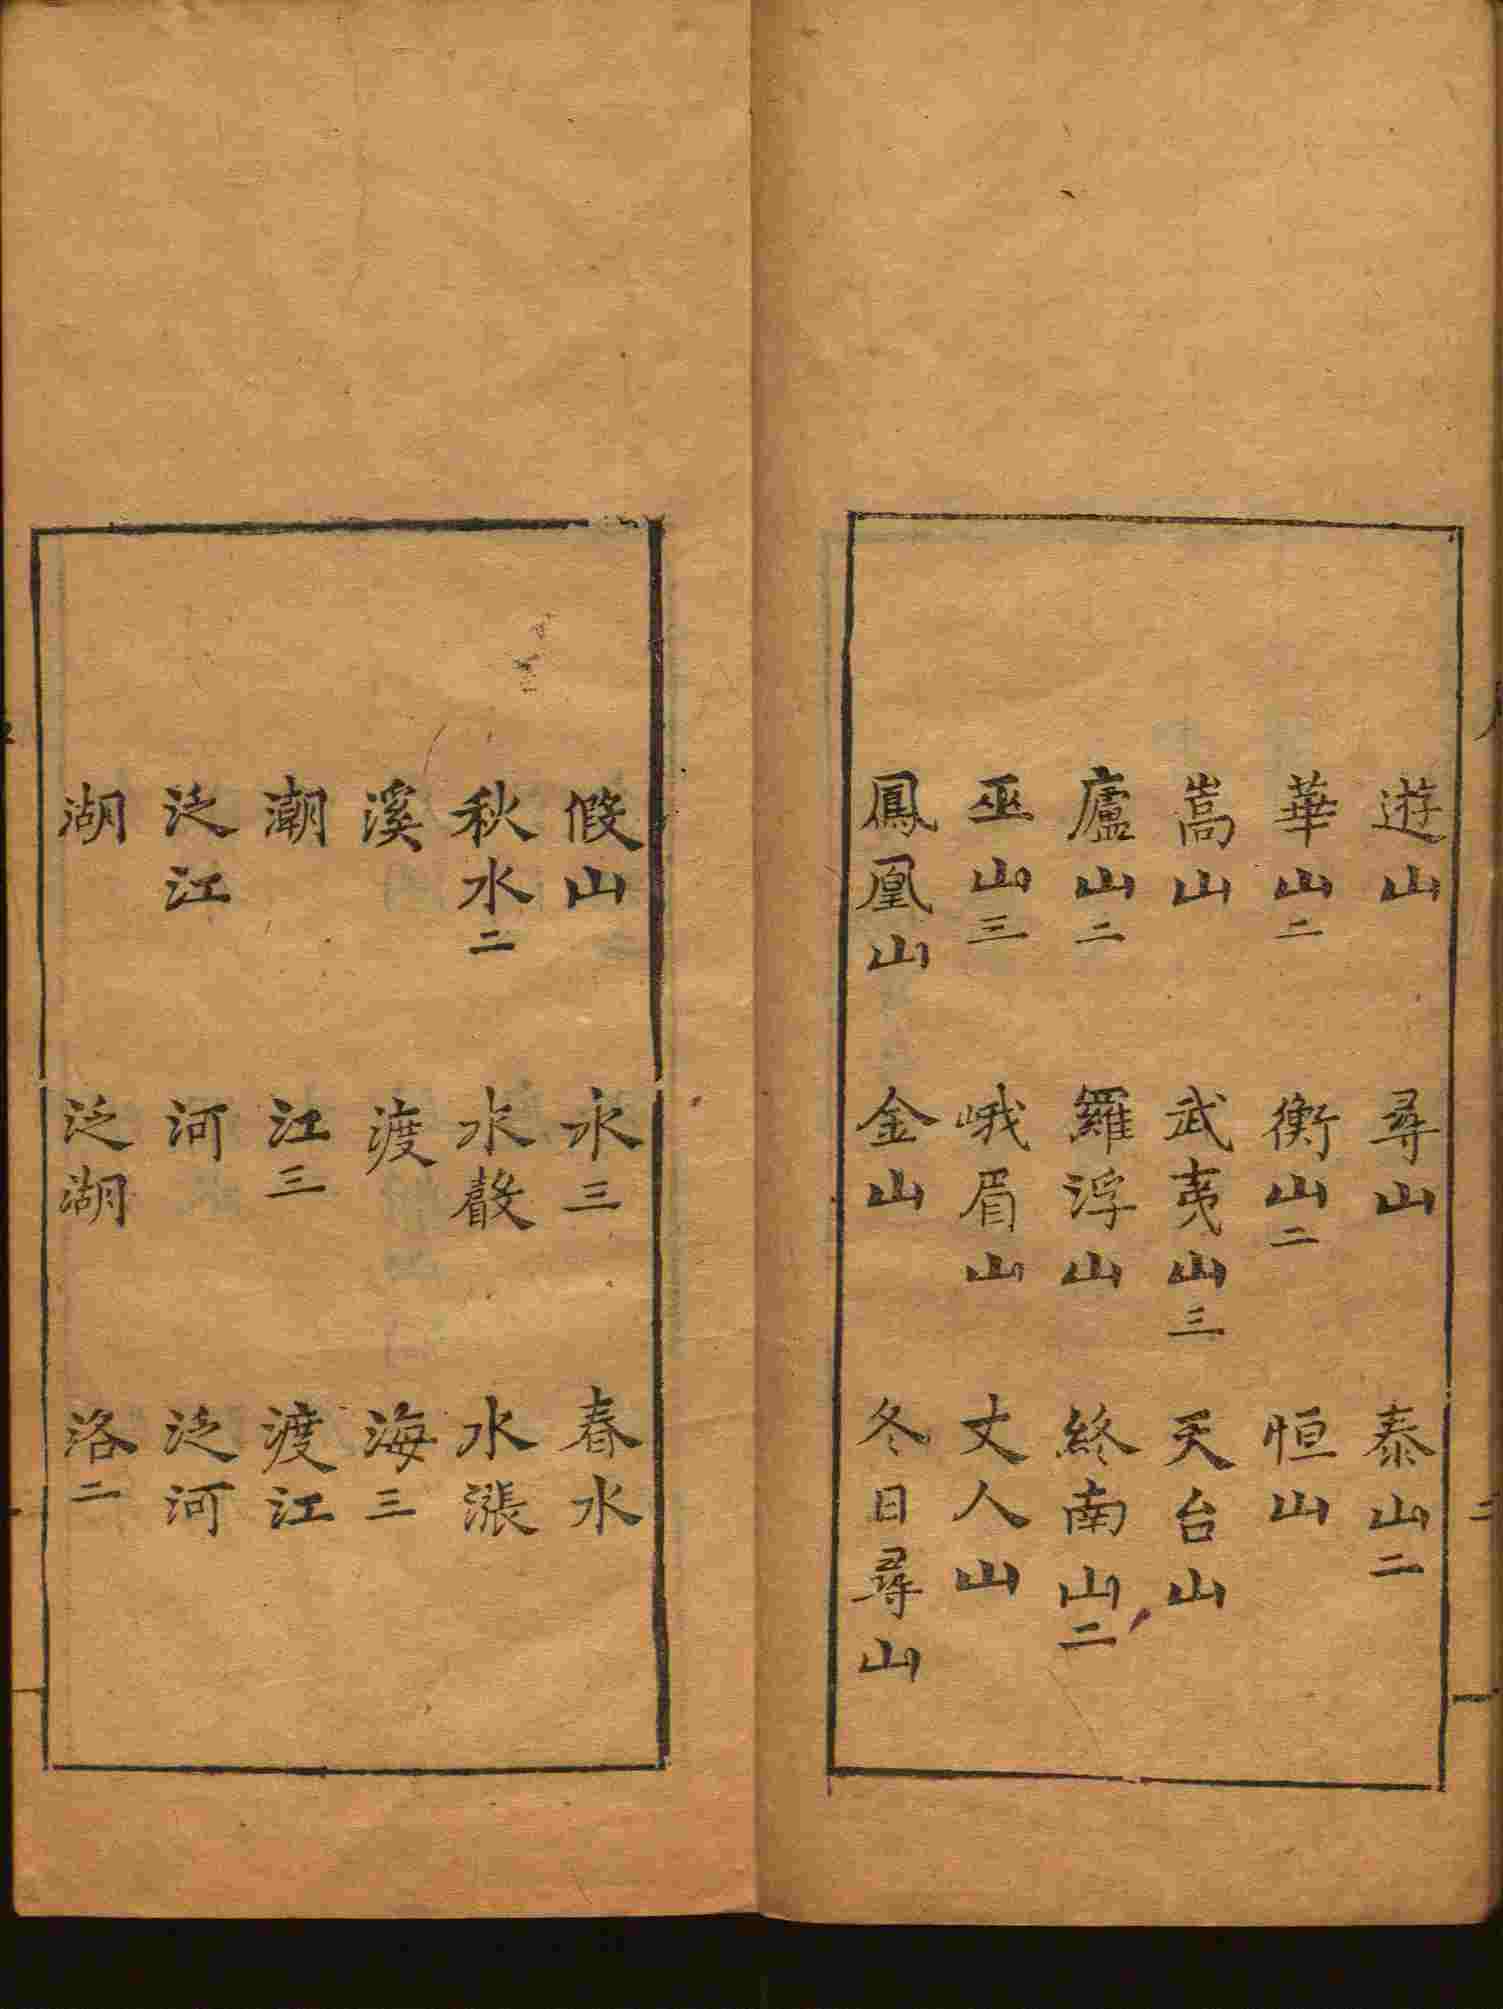 遊山 尋山 泰山二
華山二 衡山二 恒山
嵩山 武夷山三 天台山
廬山二 羅浮山 終南山二
巫山三 峨眉山 丈人山
鳳凰山 金山 冬日尋山
假山 水三 春水
秋水二 水聲 水漲
溪 渡 海三
潮 江三 渡江
泛江 河 泛河
湖 泛湖 洛二